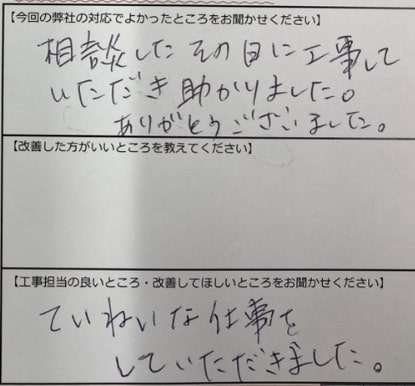 【今回の弊社の対応でよかったところをお聞かせください】
相談したその日に工事して
いただき助かりました。
ありがとうございました。
【改善した方がいいところを教えてください】
【工事担当の良いところ・改善してほしいところをお聞かせください】
ていねいな仕事を
していただきました。